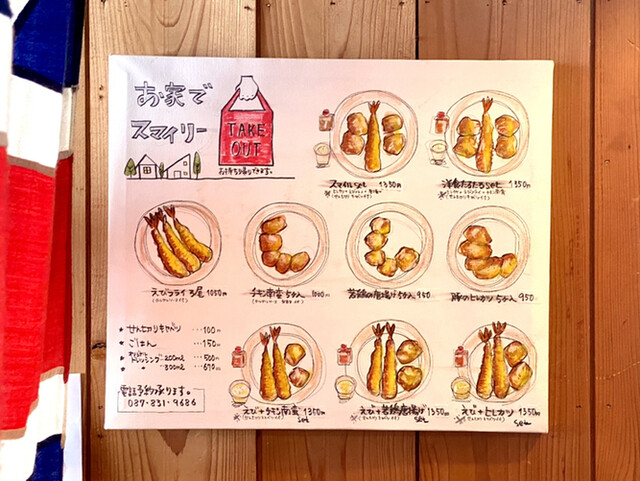 お家で
スマイリー
TAKE
OUT
お持ち帰りできます。
スマイルset 1350円
1350円
えびフライ3尾 1050円
チキン南蛮 5ケ入 1000円
若鶏の唐揚げ 5ケ入 950
豚のヒレカツ 5ケ入 950
せん切りキャベツ ・・・100円
ごはん ・・・150円
ドレッシング 200ml ・・・500円
〃 300ml ・・・670円
電話予約承ります。
087-831-9686
えび+チキン南蛮 1350円
set
えび+若鶏唐揚げ 1350円
set
えび+ヒレカツ 1350円
set